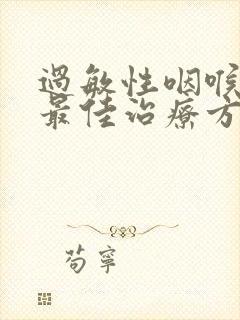 過敏性咽喉
最佳治療方
苟寧